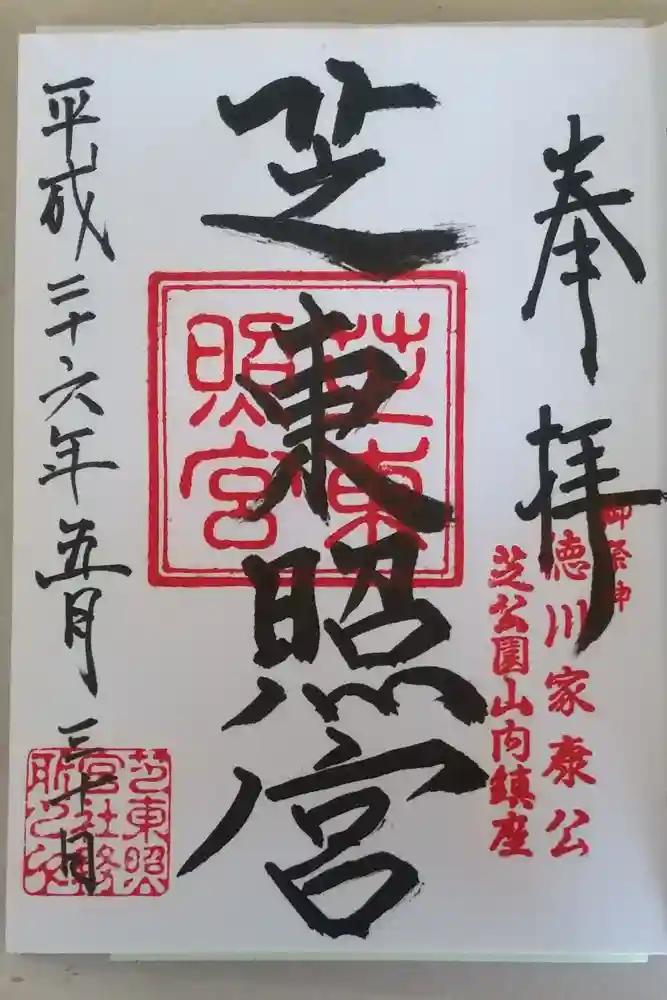 奉拝
御祭神
徳川家康公
芝公園山内鎮座
芝東照宮
芝東照宮
平成二十六年五月三十日
芝東照宮社務所之印